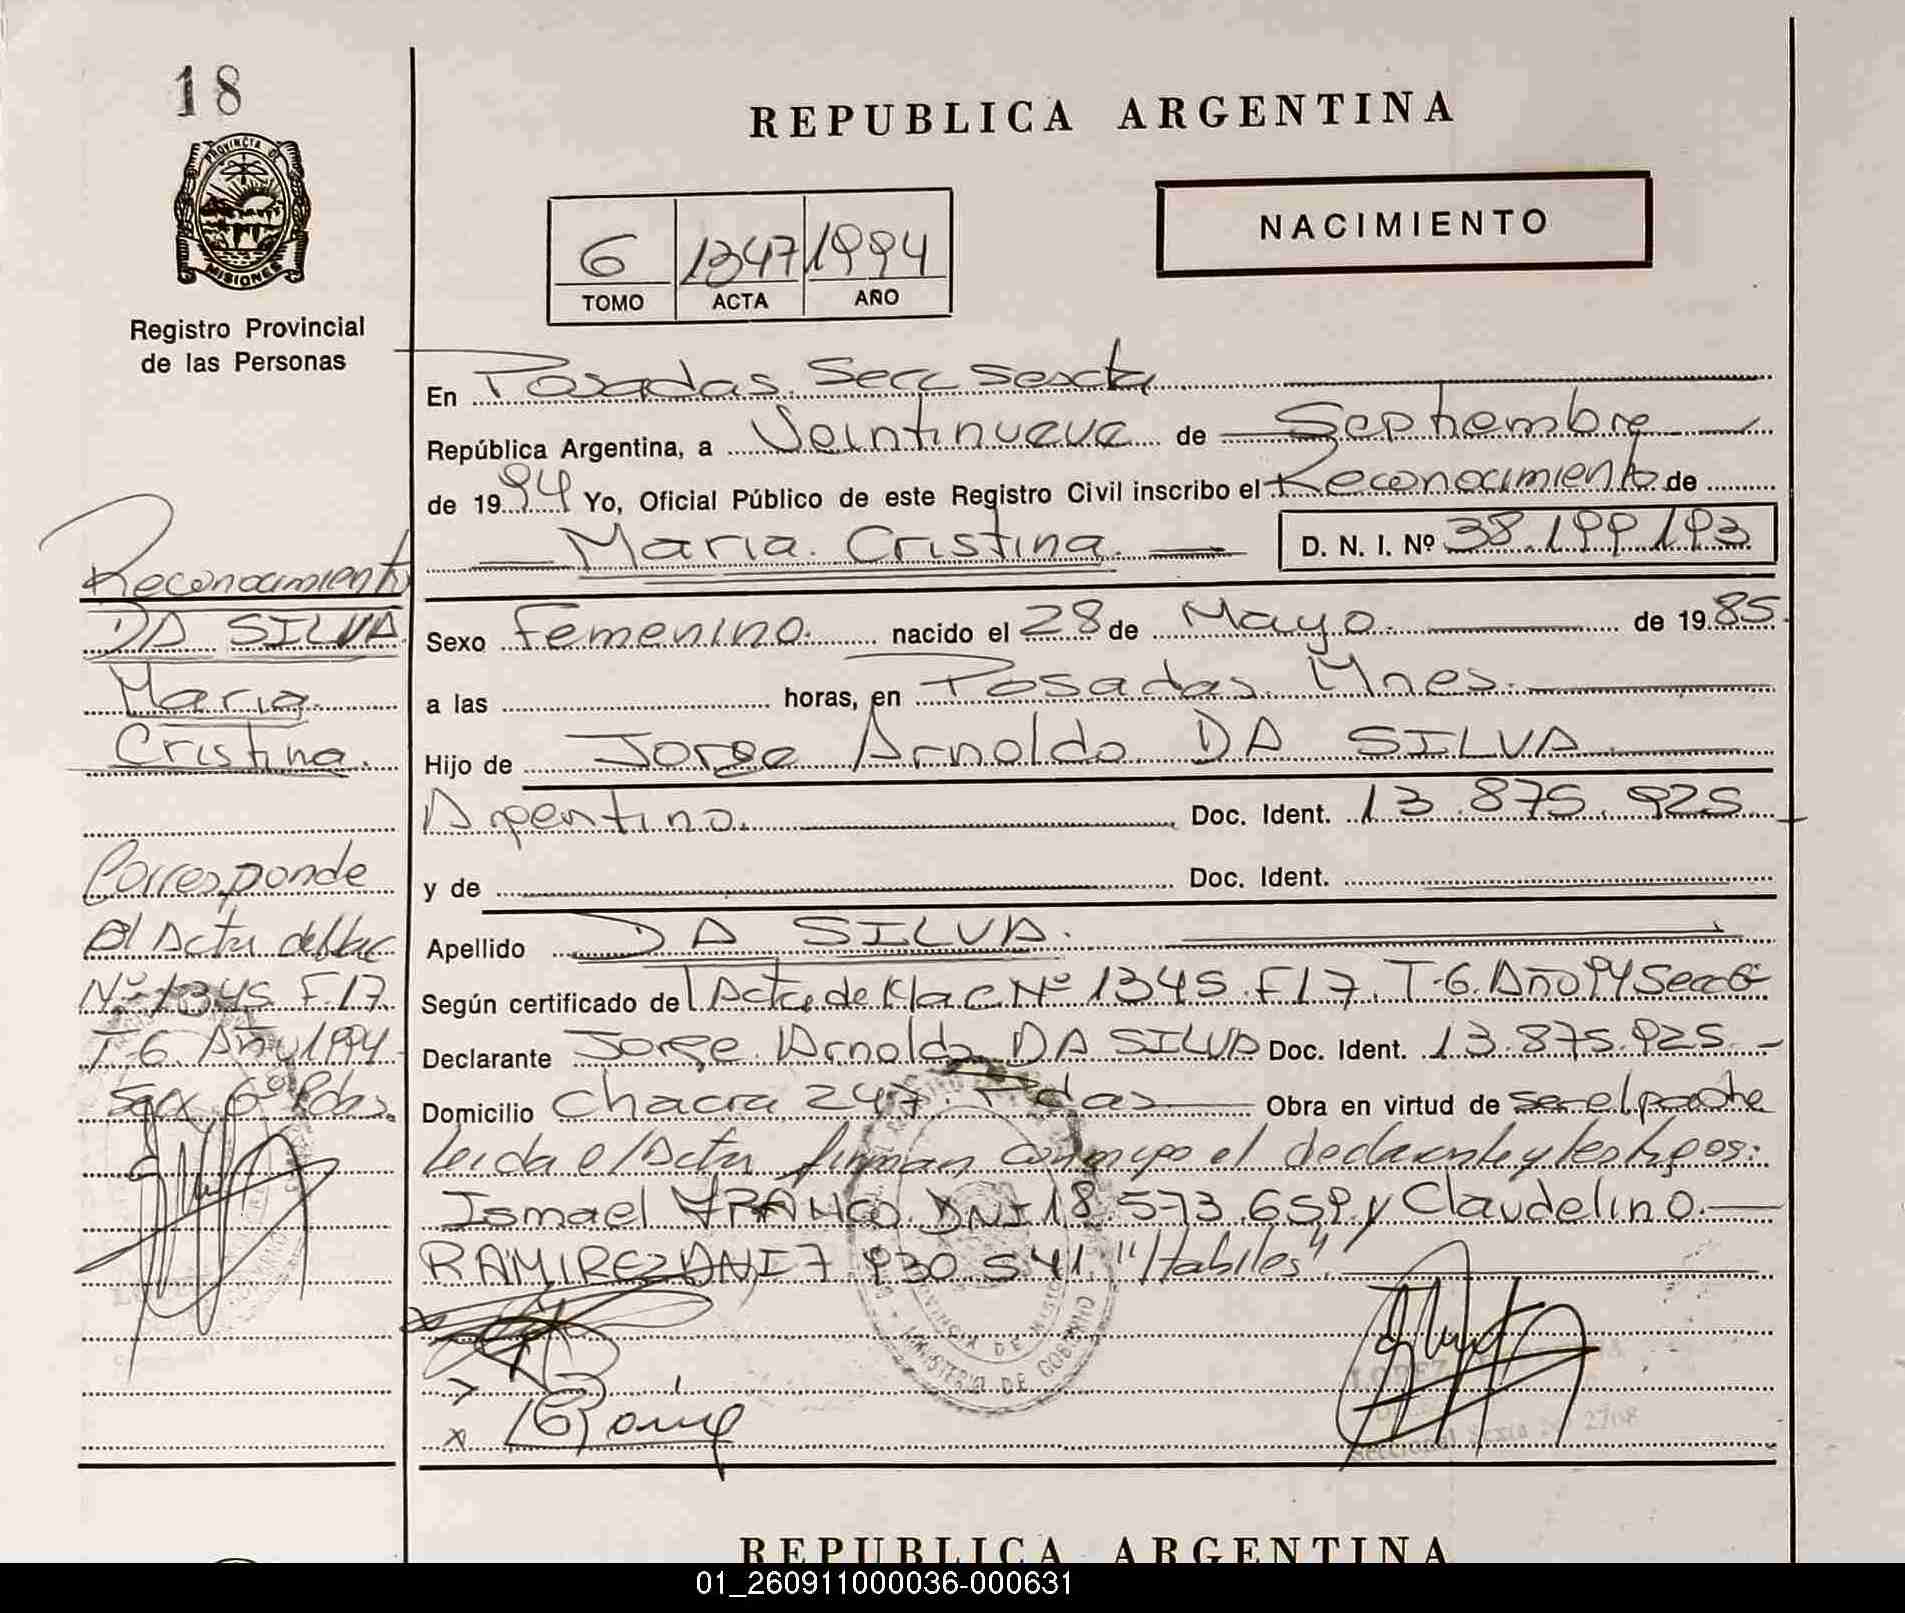 18
PROVINCIA DE
MISIONES
Registro Provincial
de las Personas
Reconocimiento
DA SILVA.
Maria
Cristina.
Corresponde
al Acta del Nac
Nº 1345 F.17
T-6 Año 1994
Secc 6º Pdas.
REPUBLICA ARGENTINA
NACIMIENTO
6 1347 1994
TOMO ACTA AÑO
En Posadas. Secc Sexta
República Argentina, a Veintinueve de Septiembre
de 1994 Yo, Oficial Público de este Registro Civil inscribo el Reconocimiento de
Maria Cristina. D. N. I. Nº 38.199.193
Sexo Femenino. nacido el 28 de Mayo. de 1985.
a las horas, en Posadas. Mnes.
Hijo de Jorge Arnoldo DA SILVA
Argentino. Doc. Ident. 13.875.925
y de Doc. Ident.
Apellido DA SILVA.
Según certificado del Acta de Nac Nº 1345. F17. T-6. Año 94 Secc 6º
Declarante Jorge Arnoldo DA SILVA Doc. Ident. 13.875.925.
Domicilio Chacra 247. Pdas Obra en virtud de ser el padre
Leida el Acta firman conmigo el declarante y testigos:
Ismael FRANCO DNI 18.573.659 y Claudelino
RAMIREZ DNI 7.930.541 "Habiles"
PROVINCIA DE MISIONES
MINISTERIO DE GOBIERNO
LOPEZ
Seccional Sexta
REPUBLICA ARGENTINA
01_260911000036-000631